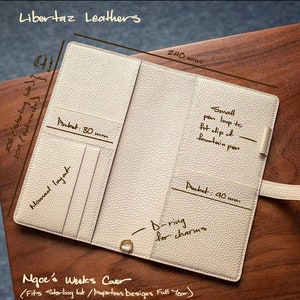 Libertaz Leathers
240 mm
Small
pen loop to
fit clip of
fountain pen
Pocket: 80 mm
Pocket: 90 mm
Normal layout
D-ring
for charms
Ngoc's Weeks Cover
(Fits Sterling Ink / Impertous Designs Full Year)